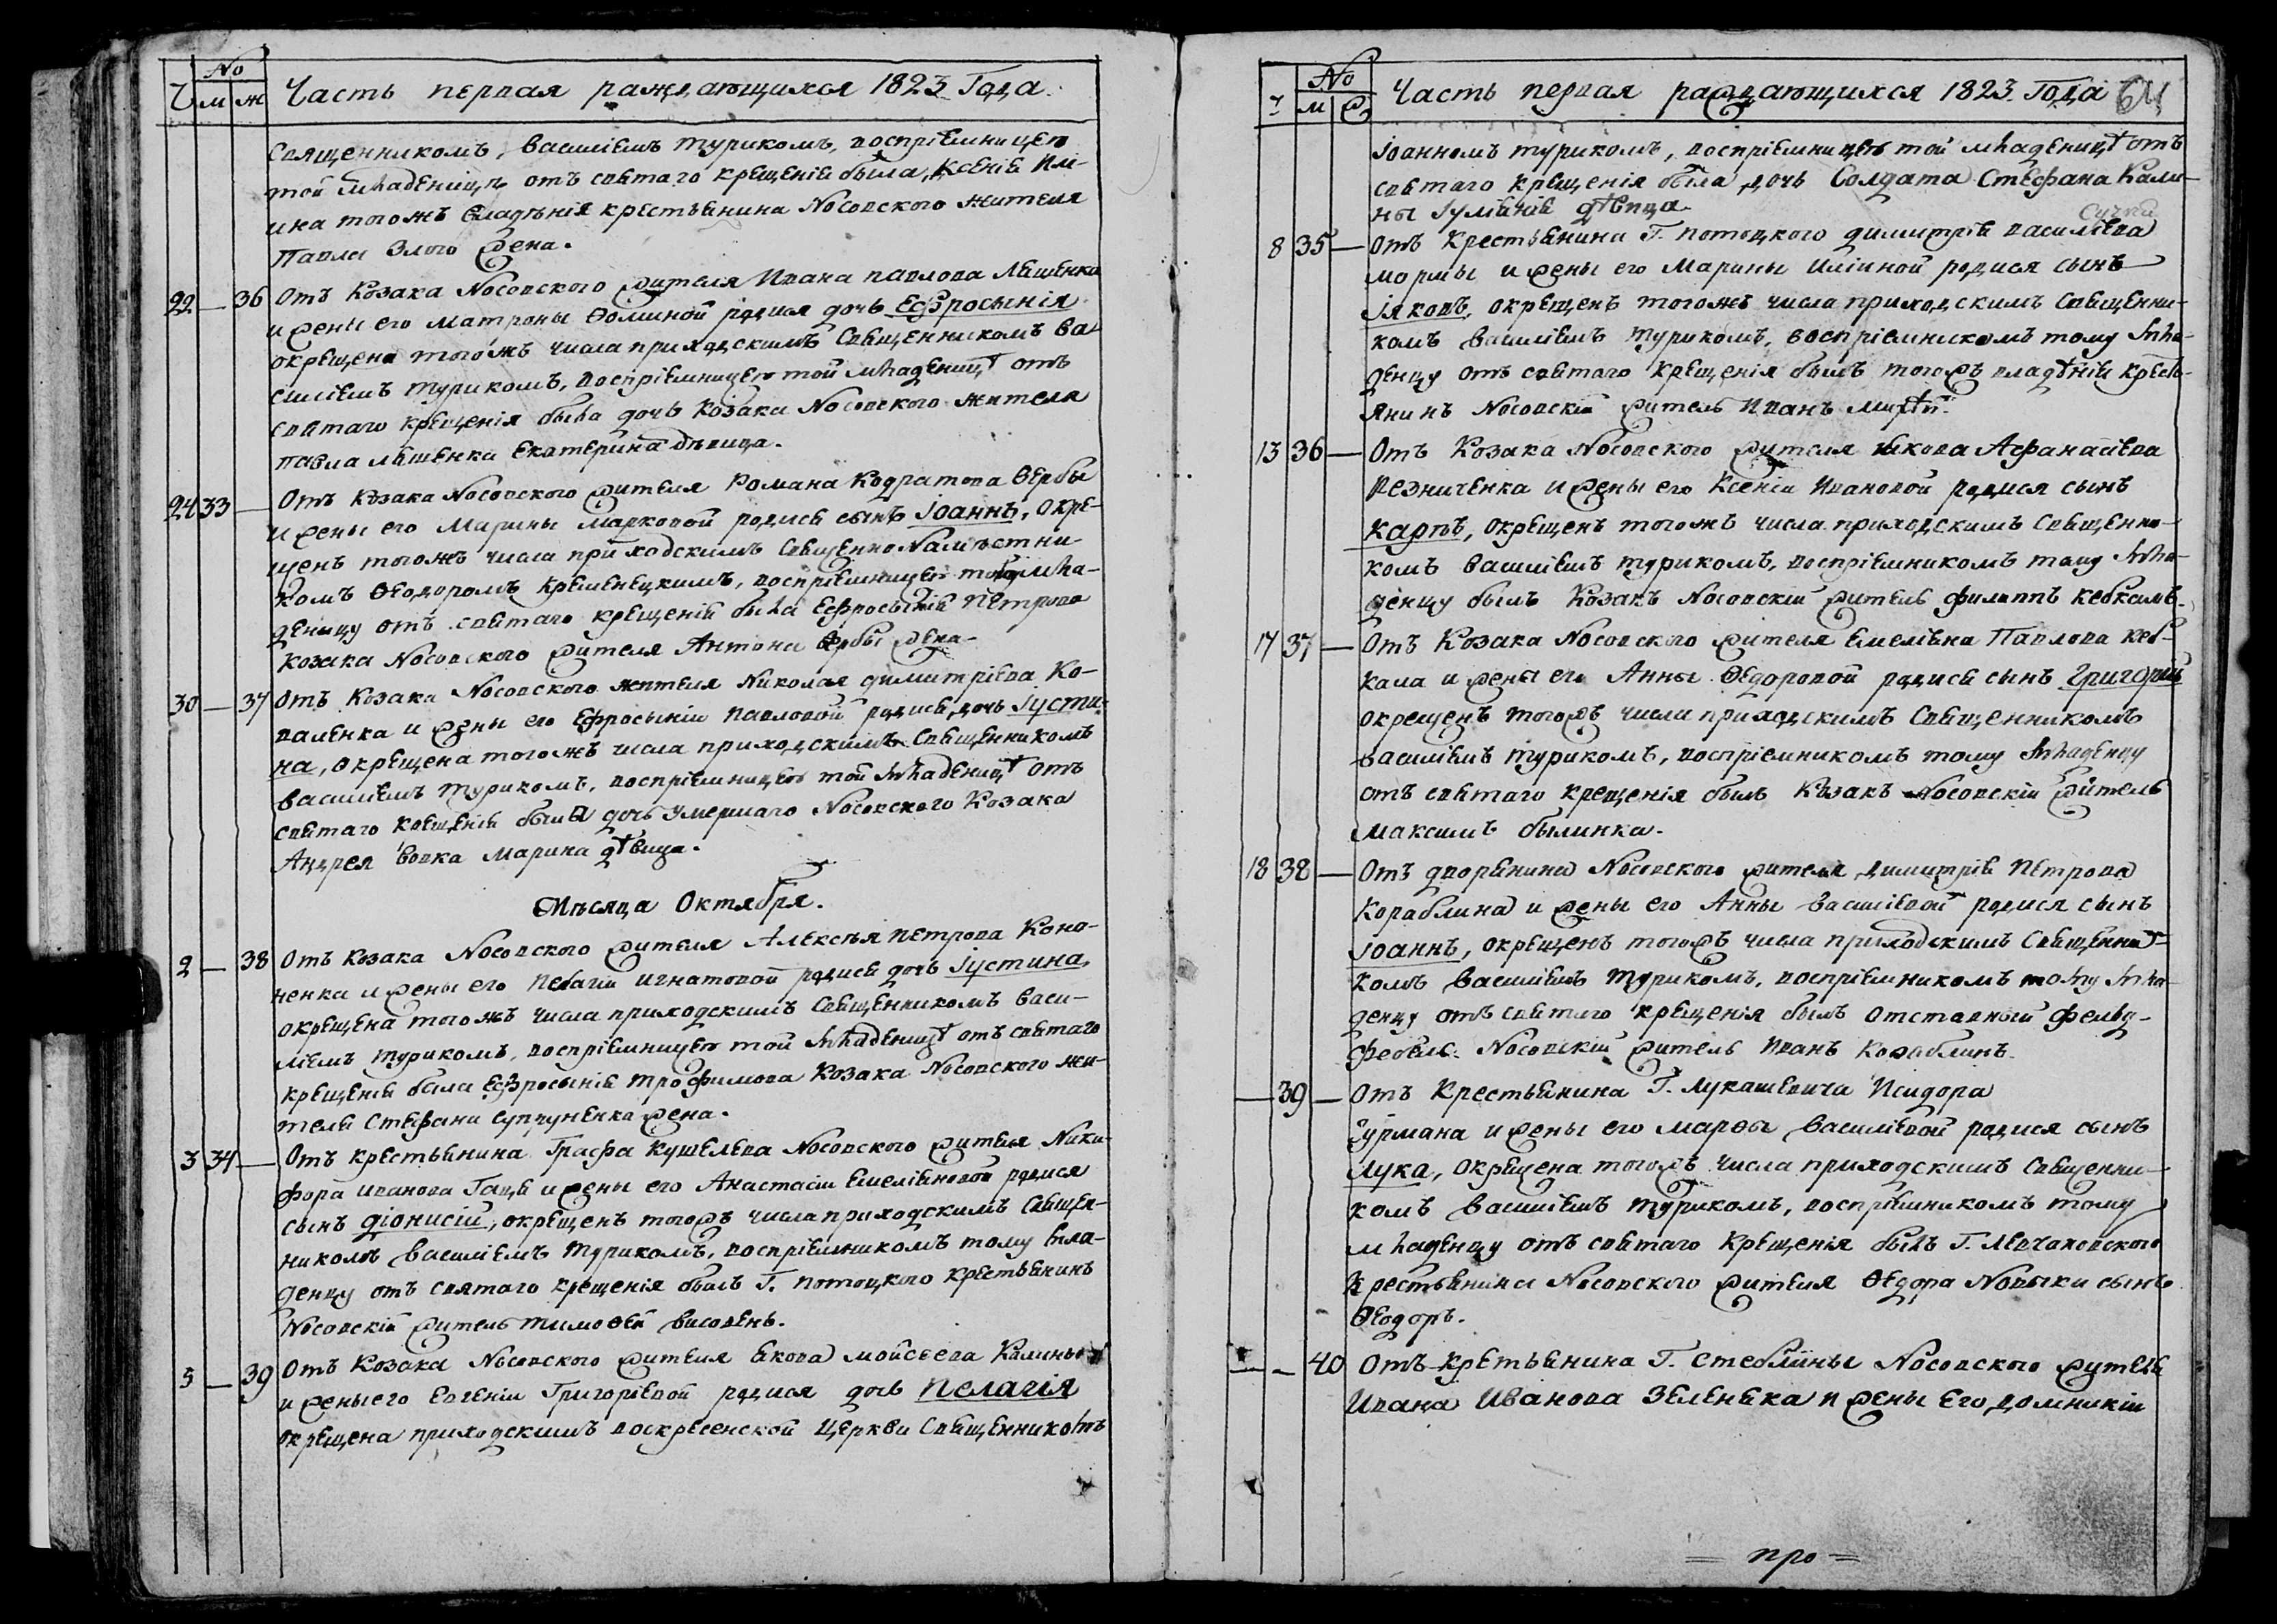 No
Ч м ж Часть первая раждающихся 1823 Года.
священникомъ, василіемъ туриком, воспріемницею
той младеницѣ отъ святаго крещенія была, Ксенія Иль-
ина тогожъ владѣнія крестьянина Носовского жителя
Павла Злого жена.
22 — 36 Отъ Козака Носовского жителя Ивана павлова Ляшенка
и жены его матроны Ѳоминой родися дочь Ефросынія
окрещена тогожъ числа приходскимъ Священникомъ Ва
силіемъ туриком, воспріемницею той младеницѣ отъ
святаго крещенія была дочь Козака Носовского жителя
павла ляшенка Екатерина дѣвица.
24 33 — Отъ Козака Носовского жителя Романа Кодратова Вербы
и жены его Марины марковой родися сынъ Іоаннъ, окре-
щенъ тогожъ числа приходскимъ Священно Намѣстни-
комъ Ѳеодоромъ Кременецкимъ, воспріемницею тому мла-
деницу отъ святаго крещенія была Ефросынія петрова
козака Носовского жителя Антона Вербы жена.
30 — 37 Отъ Козака Носовского жителя Николая димитріева Ко-
валенка и жены его Ефросыніи павловой родися дочь Іусти-
на, окрещена тогожъ числа приходскимъ Священникомъ
василіемъ туриком, воспріемницею той младеницѣ отъ
святаго крещенія была дочь умершаго Носовского Козака
Андрея вовка марина дѣвица.
Мѣсяца Октября.
2 — 38 Отъ Козака Носовского жителя Алексѣя петрова Коно-
ненка и жены его пелагіи игнатовой родися дочь Іустина,
окрещена тогожъ числа приходскимъ Священникомъ васи-
ліемъ туриком, воспріемницею той младеницѣ отъ святаго
крещенія была Ефросынія трофимова Козака Носовского жи-
теля Стефана супруненка жена.
3 34 — Отъ крестьянина Графа Кушелева Носовского жителя Ники-
фора иванова Гаця и жены его Анастасіи Емеліяновой родися
сынъ діонисій, окрещенъ тогожъ числа приходскимъ Священ-
никомъ василіемъ туриком, воспріемникомъ тому мла-
денцу отъ святаго крещенія былъ Г. потоцкого крестьянинъ
Носовскій житель тимоѳей висовень.
5 — 39 Отъ Козака Носовского жителя якова мойсеева Калины
и жены его Евгеніи Григоріевой родися дочь пелагія
окрещена приходскимъ воскресенской Церкви Священникомъ
No
ч м ж Часть первая раждающихся 1823. Года 64
Іоанномъ туриком, воспріемницею той младеницѣ отъ
святаго крещенія была дочь Солдата Стефана Кали-
ны Іуліянія дѣвица.
8 35 — Отъ Крестьянина Г. потоцкого димитрія василіева
мормы и жены его Марины Иліиной родися сынъ
Іяковъ, окрещенъ тогожъ числа приходскимъ Священни-
комъ василіемъ туриком, воспріемникомъ тому мла-
денцу отъ святаго крещенія былъ тогожъ владѣнія кресть-
янинъ Носовскій житель Иванъ
13 36 — Отъ Козака Носовского жителя якова Афанасіева
Резниченка и жены его Ксеніи Ивановой родися сынъ
Карпъ, окрещенъ тогожъ числа приходскимъ Священни-
комъ василіемъ туриком, воспріемникомъ тому мла-
денцу былъ Козакъ Носовскій житель филиппъ кебкалъ.
17 37 — Отъ Козака Носовского жителя Емеліяна Павлова кеб-
кала и жены его Анны Ѳедоровой родися сынъ Григорій
окрещенъ тогожъ числа приходскимъ Священникомъ
василіемъ туриком, воспріемникомъ тому младенцу
отъ святаго крещенія былъ Козакъ Носовскій житель
максимъ былинка.
18 38 — Отъ дворянина Носовского жителя димитрія Петрова
Кораблина и жены его Анны василіевой родися сынъ
Іоаннъ, окрещенъ тогожъ числа приходскимъ Священни-
комъ василіемъ туриком, воспріемникомъ тому мла-
денцу отъ святаго крещенія былъ отставный фельд-
фебель Носовскій житель Иванъ Кораблинъ.
— 39 — Отъ Крестьянина Г. Лукашевича Исидора
Гурмана и жены его марѳы василіевой родися сынъ
Лука, окрещена тогожъ числа приходскимъ Священни-
комъ василіемъ туриком, воспріемникомъ тому
младенцу отъ святаго крещенія былъ Г. Левчаковского
крестьянина Носовского жителя Ѳедора Новыки сынъ
Ѳеодоръ.
— — 40 Отъ кретьянина Г. стеблины Носовского жителя
Ивана Иванова Зеленька и жены его домникіи
= про =